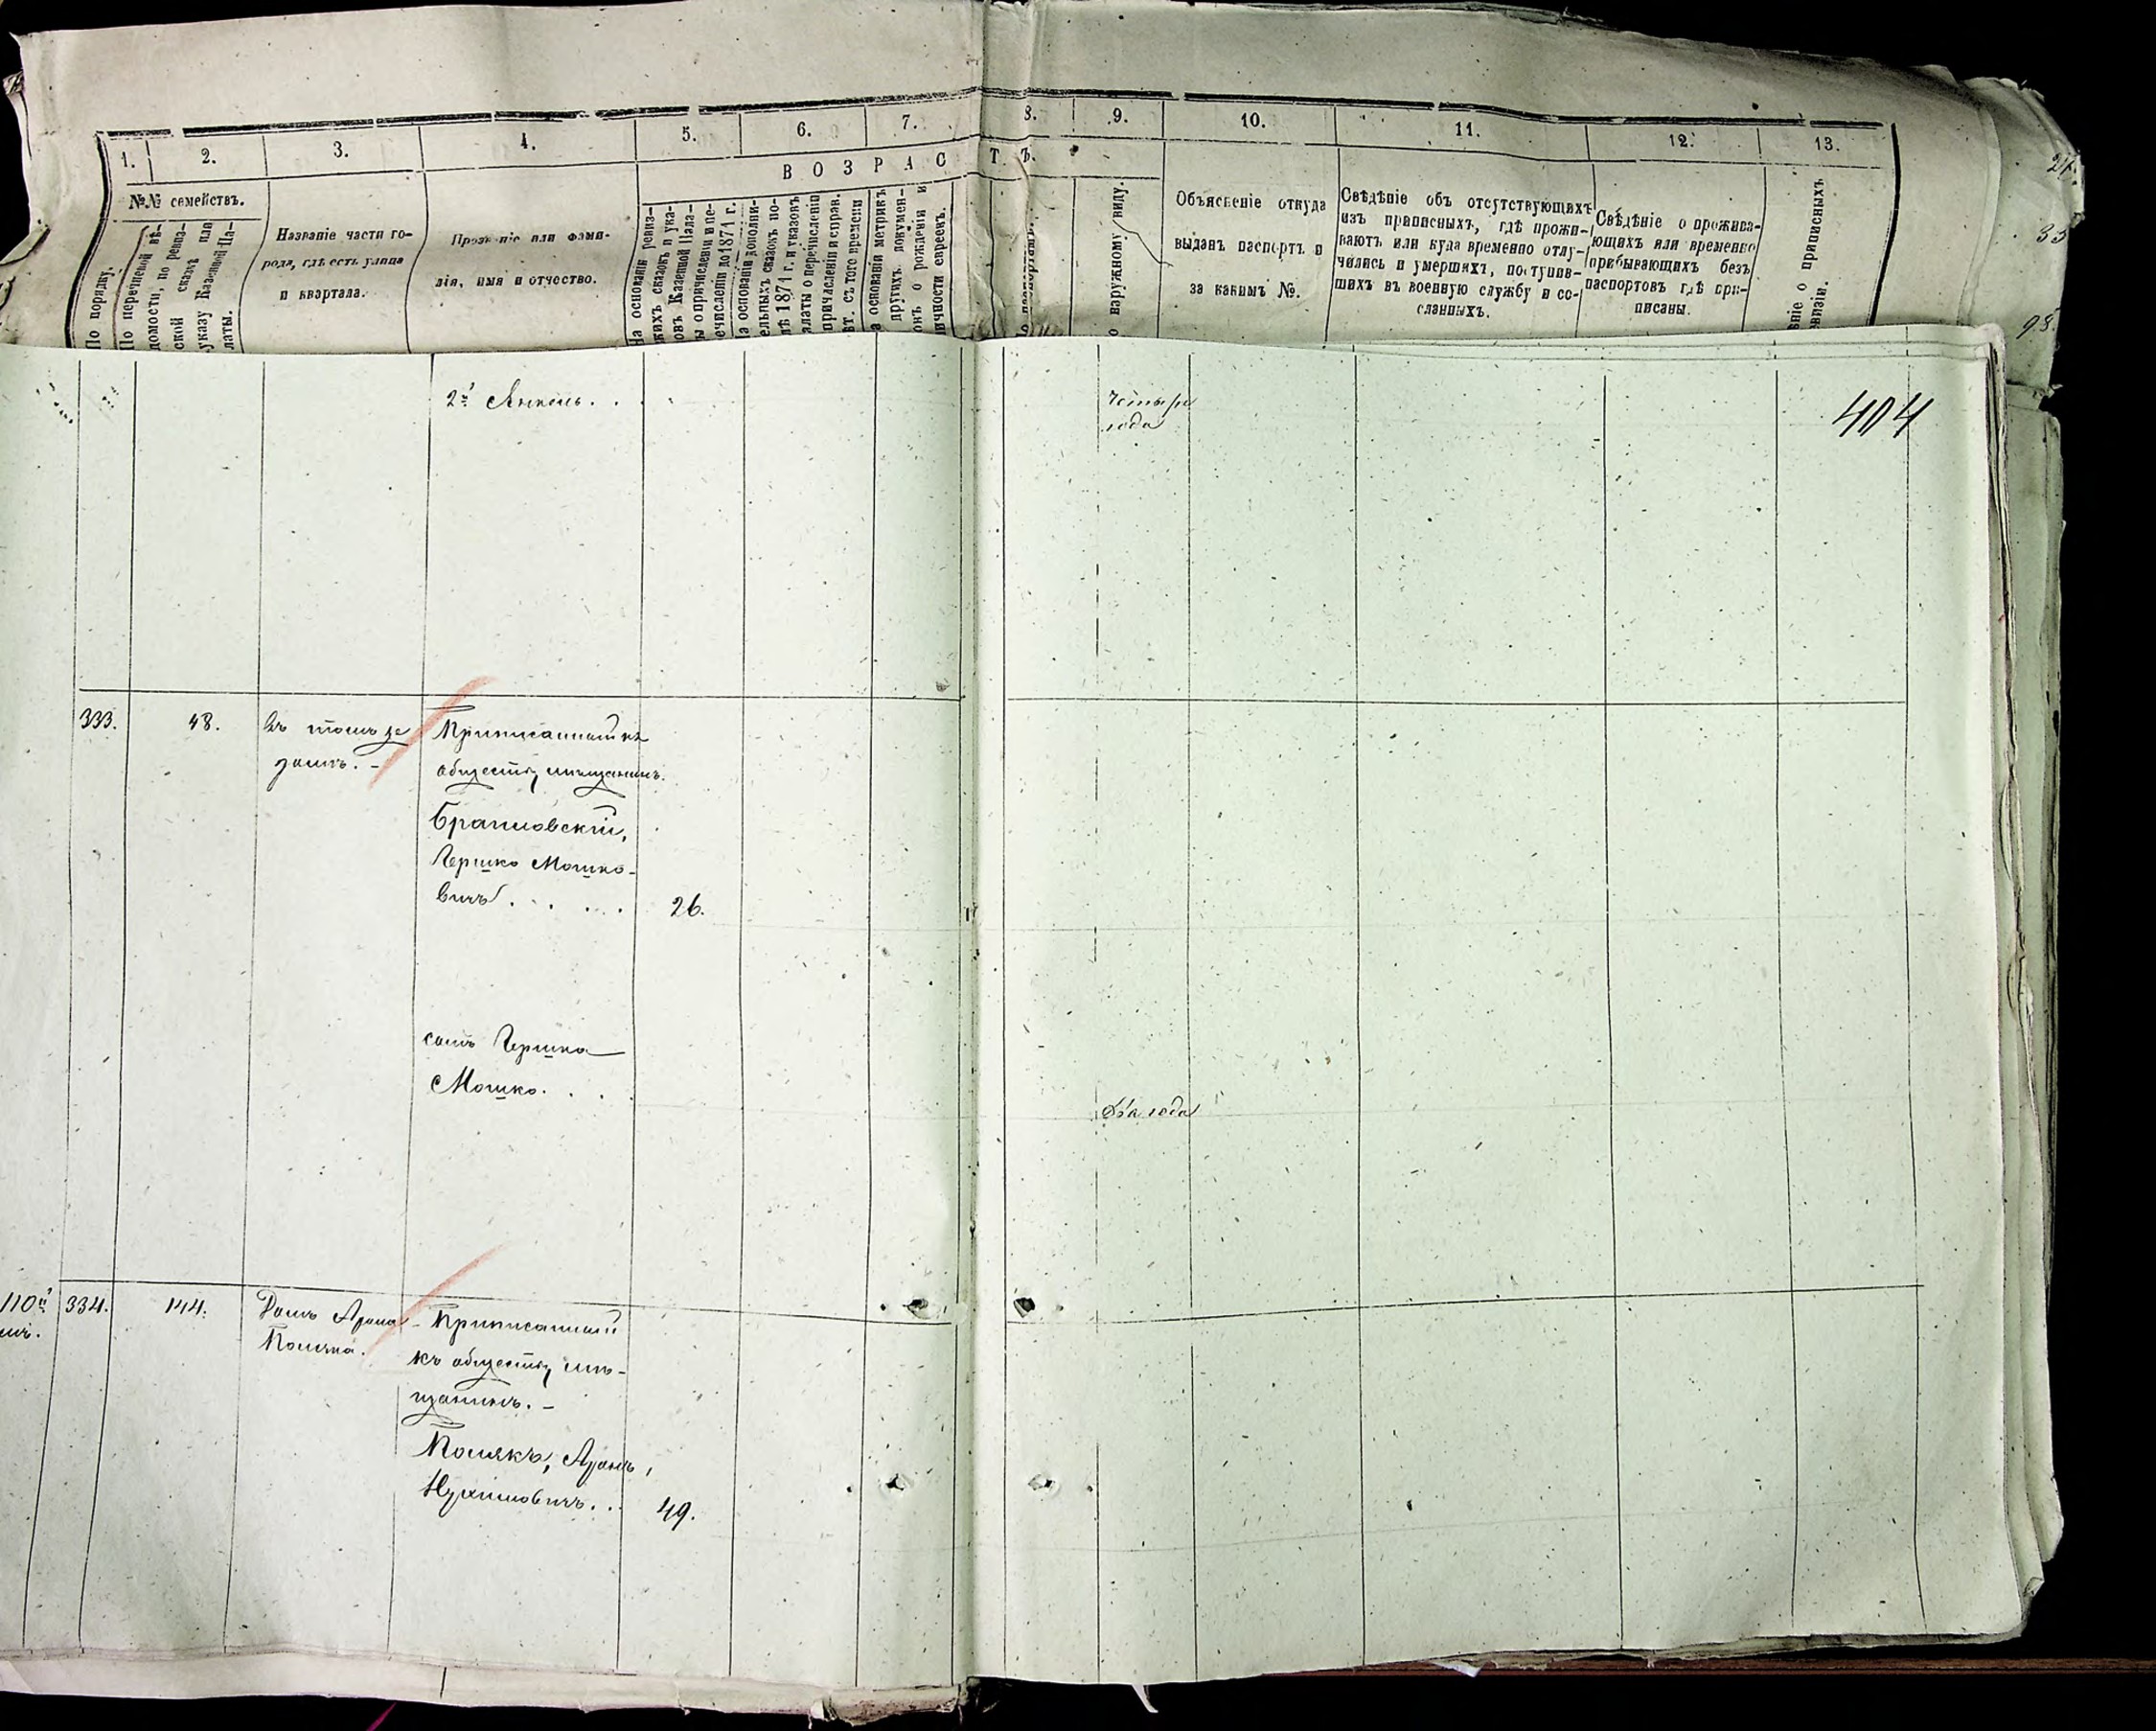 1. 2. 3. 4. 5. 6. 7. 8. 9. 10. 11. 12. 13.
№№ семействъ.
По порядку.
По перечневой вѣ-
домости, по ревиз-
ской сказкѣ или
указу Казенной Па-
латы.
Названіе части го-
рода, гдѣ есть улица
и квартала.
Прозваніе или фами-
лія, имя и отчество.
ВОЗРАСТЪ.
На основаніи ревиз-
скихъ сказокъ и ука-
зовъ Казенной Пала-
ты о причисленіи и пе-
речисленіи до 1871 г.
На основаніи дополни-
тельныхъ сказокъ по-
слѣ 1871 г. и указовъ
Палаты о перечисленіи
причисленіи и справ.
съ того времени
На основаніи метрикъ
другихъ докумен-
о рожденіи и
личности евреевъ.
По наружному виду.
Объясненіе откуда
выданъ паспортъ и
за какимъ №.
Свѣдѣніе объ отсутствующихъ
изъ приписныхъ, гдѣ прожи-
ваютъ или куда временно отлу-
чились и умершихъ, поступив-
шихъ въ военную службу и со-
сланныхъ.
Свѣдѣніе о прожива-
ющихъ или временно
прибывающихъ безъ
паспортовъ гдѣ при-
писаны.
о приписныхъ
ревизіи.
24.
33
98.
404
2й Анкель. . .
четыре
года
333. 48. Въ томъ же
домѣ. –
Приписанный къ
обществу мѣщанинъ.
Браиловскій,
Гершко Мошко-
вичъ . . . . . 26.
сынъ Гершка
Мошко. . . два года
110й 334. 144. Домъ Арона
Поляка.
Приписанный
къ обществу мѣ-
щанинъ. –
Полякъ, Аронъ,
Нухимовичъ. . . 49.